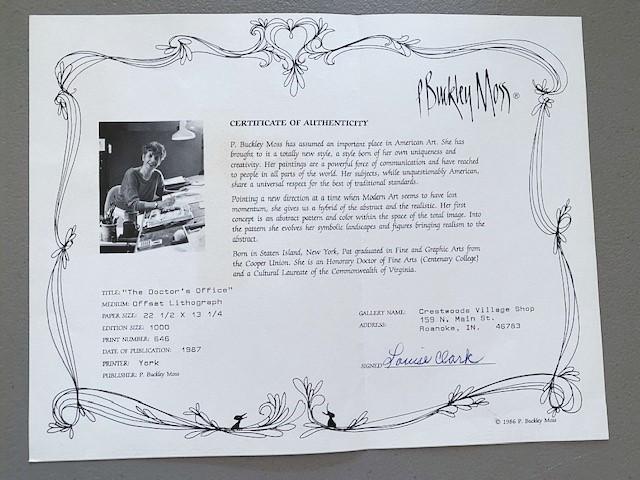 P. Buckley Moss®
CERTIFICATE OF AUTHENTICITY
P. Buckley Moss has assumed an important place in American Art. She has
brought to it a totally new style, a style born of her own uniqueness and
creativity. Her paintings are a powerful force of communication and have reached
to people in all parts of the world. Her subjects, while unquestionably American,
share a universal respect for the best of traditional standards.
Pointing a new direction at a time when Modern Art seems to have lost
momentum, she gives us a hybrid of the abstract and the realistic. Her first
concept is an abstract pattern and color within the space of the total image. Into
the pattern she evolves her symbolic landscapes and figures bringing realism to the
abstract.
Born in Staten Island, New York, Pat graduated in Fine and Graphic Arts from
the Cooper Union. She is an Honorary Doctor of Fine Arts (Centenary College)
and a Cultural Laureate of the Commonwealth of Virginia.
TITLE: "The Doctor's Office"
MEDIUM: Offset Lithograph
PAPER SIZE: 22 1/2 X 13 1/4
EDITION SIZE: 1000
PRINT NUMBER: 646
DATE OF PUBLICATION: 1987
PRINTER: York
PUBLISHER: P. Buckley Moss
GALLERY NAME: Crestwoods Village Shop
ADDRESS: 159 N. Main St.
Roanoke, IN. 46783
SIGNED Louise Clark
© 1986 P. Buckley Moss